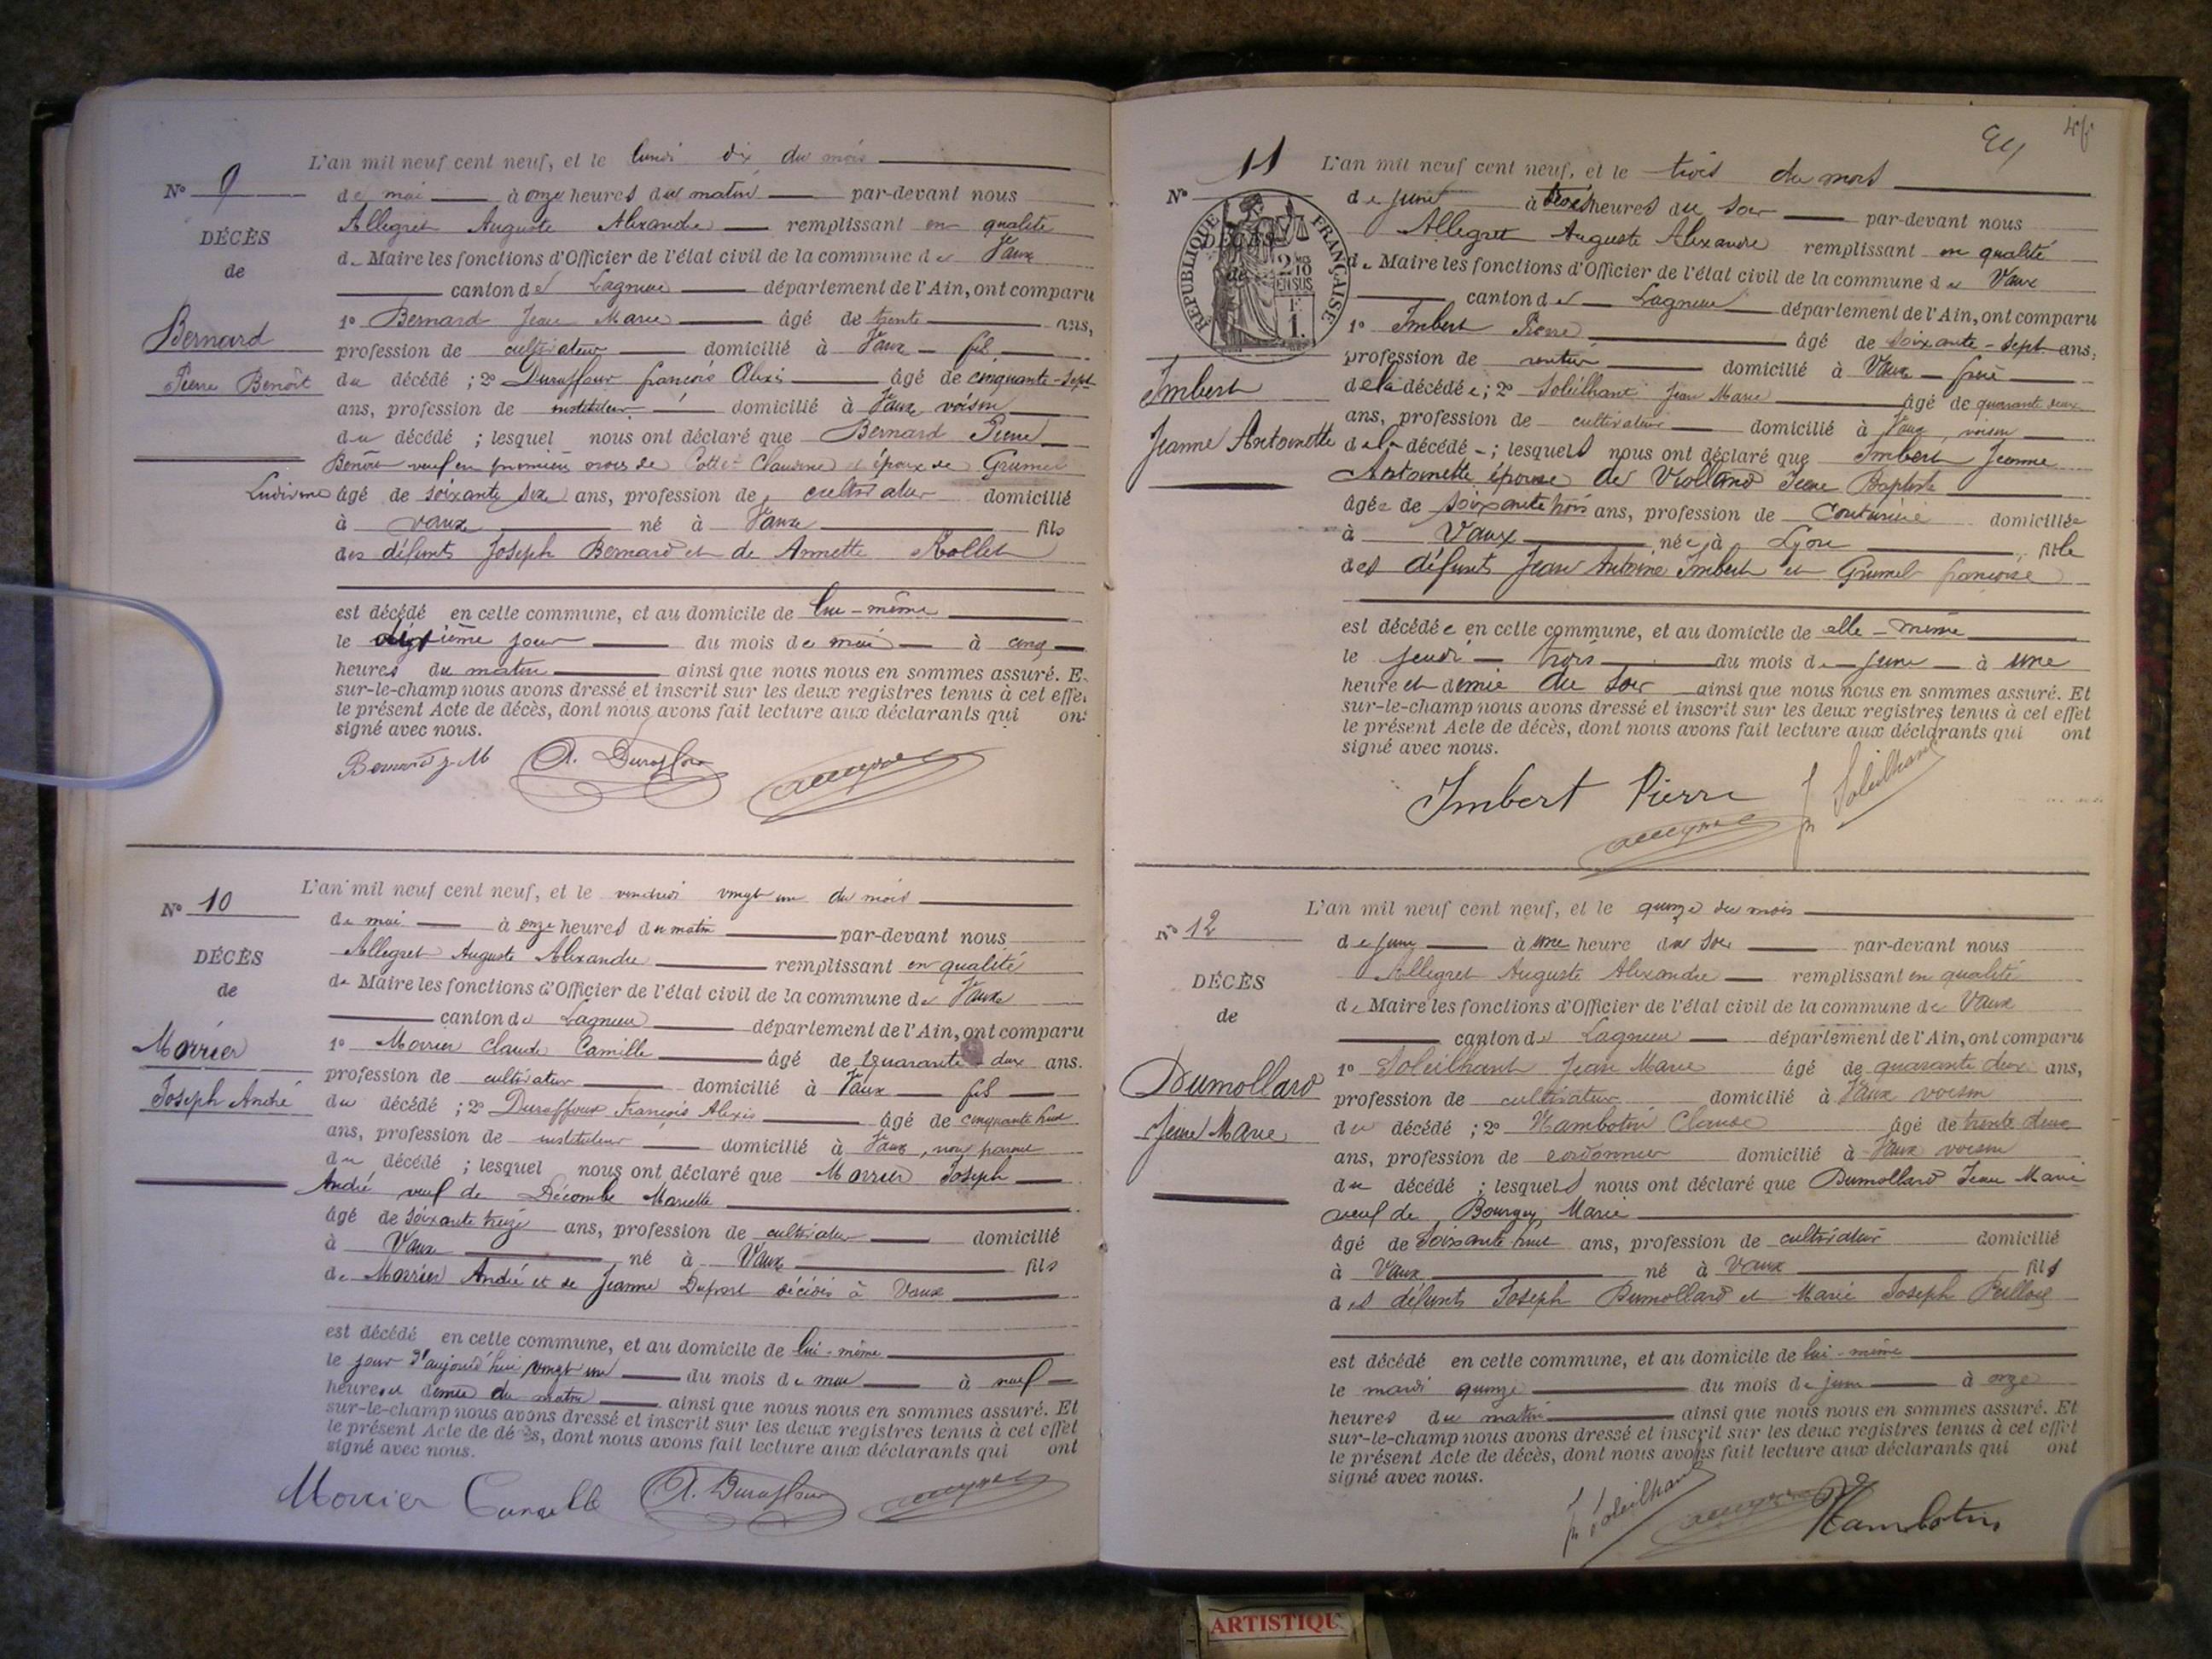 L'an mil neuf cent neuf, et le lundi dix du mois
N° 9
de mai à onze heures du matin par-devant nous
DÉCÈS
Allegret Auguste Alexandre remplissant en qualité
de
de Maire les fonctions d'Officier de l'état civil de la commune de Vaux
canton de Lagnieu département de l'Ain, ont comparu
Bernard
1° Bernard Jean Marie âgé de trente ans,
profession de cultivateur domicilié à Vaux fils
Pierre Benoît
du décédé ; 2° Duraffour françois Alexis âgé de cinquante-sept
ans, profession de instituteur domicilié à Vaux, voisin
du décédé ; lesquel nous ont déclaré que Bernard Pierre
Benoît veuf en première noces de Cottet Claudine et époux de Grumel
Ludivine âgé de soixante six ans, profession de cultivateur domicilié
à Vaux né à Vaux fils
des défunts Joseph Bernard et de Annette Rollet
est décédé en cette commune, et au domicile de lui-même
le dixième jour du mois de mai à cinq
heures du matin ainsi que nous nous en sommes assuré. E
sur-le-champ nous avons dressé et inscrit sur les deux registres tenus à cet effe
le présent Acte de décès, dont nous avons fait lecture aux déclarants qui on
signé avec nous.
Bernard J. M A. Duraffour
L'an mil neuf cent neuf, et le vendredi vingt un du mois
N° 10
de mai à onze heures du matin par-devant nous
DÉCÈS
Allegret Auguste Alexandre remplissant en qualité
de
de Maire les fonctions d'Officier de l'état civil de la commune de Vaux
canton de Lagnieu département de l'Ain, ont comparu
Morrier
1° Morrier Claude Camille âgé de quarante deux ans.
profession de cultivateur domicilié à Vaux fils
Joseph André
du décédé ; 2° Duraffour François Alexis âgé de cinquante huit
ans, profession de instituteur domicilié à Vaux, non parent
du décédé ; lesquel nous ont déclaré que Morrier Joseph
André veuf de Décombe Mariette
âgé de soixante treize ans, profession de cultivateur domicilié
à Vaux né à Vaux fils
de Morrier André et de Jeanne Duport décédés à Vaux
est décédé en cette commune, et au domicile de lui-même
le jour d'aujourd'hui vingt un du mois de mai à neuf
heures et demie du matin ainsi que nous nous en sommes assuré. Et
sur-le-champ nous avons dressé et inscrit sur les deux registres tenus à cet effet
le présent Acte de décès, dont nous avons fait lecture aux déclarants qui ont
signé avec nous.
Morrier Camille A. Duraffour
L'an mil neuf cent neuf, et le trois du mois
N° 11
de juin à trois heures du soir par-devant nous
RÉPUBLIQUE FRANÇAISE
DÉCÈS
2/10 EN SUS
1 F.
Allegret Auguste Alexandre remplissant en qualité
de
de Maire les fonctions d'Officier de l'état civil de la commune de Vaux
canton de Lagnieu département de l'Ain, ont comparu
1° Imbert Pierre âgé de soixante-sept ans,
profession de rentier domicilié à Vaux frère
Imbert
de la décédée ; 2° Soleilhant Jean Marie âgé de quarante deux
ans, profession de cultivateur domicilié à Vaux, voisin
Jeanne Antoinette
de la décédé ; lesquels nous ont déclaré que Imbert Jeanne
Antoinette épouse de Violland Jean Baptiste
âgée de soixante trois ans, profession de Couturière domiciliée
à Vaux née à Lyon fille
des défunts Jean Antoine Imbert et Grumel françoise
est décédée en cette commune, et au domicile de elle-même
le jeudi trois du mois de juin à une
heure et demie du soir ainsi que nous nous en sommes assuré. Et
sur-le-champ nous avons dressé et inscrit sur les deux registres tenus à cet effet
le présent Acte de décès, dont nous avons fait lecture aux déclarants qui ont
signé avec nous.
Imbert Pierre Soleilhant
L'an mil neuf cent neuf, et le quinze du mois
N° 12
de juin à une heure du soir par-devant nous
Allegret Auguste Alexandre remplissant en qualité
DÉCÈS
de
de Maire les fonctions d'Officier de l'état civil de la commune de Vaux
canton de Lagnieu département de l'Ain, ont comparu
Dumollard
1° Soleilhant Jean Marie âgé de quarante deux ans,
profession de cultivateur domicilié à Vaux voisin
Jean Marie
du décédé ; 2° Hambotin Claude âgé de trente deux
ans, profession de cordonnier domicilié à Vaux voisin
du décédé ; lesquels nous ont déclaré que Dumollard Jean Marie
veuf de Bourgey Marie
âgé de soixante huit ans, profession de cultivateur domicilié
à Vaux né à Vaux fils
des défunts Joseph Dumollard et Marie Joseph
est décédé en cette commune, et au domicile de lui-même
le mardi quinze du mois de juin à onze
heures du matin ainsi que nous nous en sommes assuré. Et
sur-le-champ nous avons dressé et inscrit sur les deux registres tenus à cet effet
le présent Acte de décès, dont nous avons fait lecture aux déclarants qui ont
signé avec nous.
Soleilhant Hambotin
ARTISTIQU